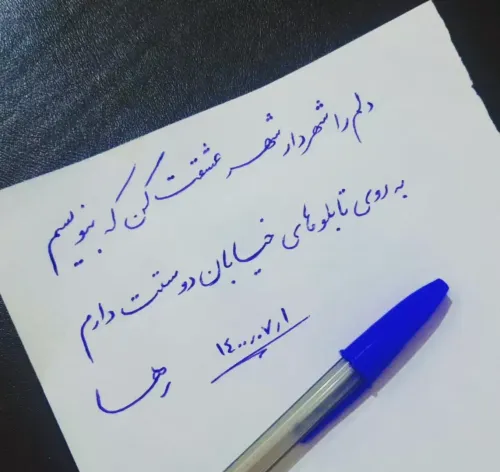 دلم را شهردار شهر عشقت کن که بنویسم
به روی تابلوهای خیابان دوستت دارم
۱۴۰۰٫۰۷٫۱
رها